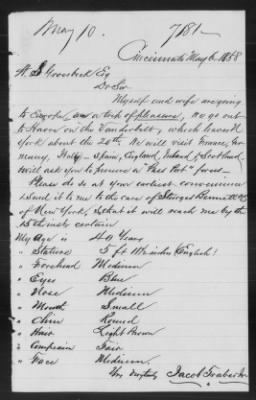 May 10. 7181
Cincinnati May 6, 1858
W. S. Groesbeck Esq
Dr Sir
Myself and wife are going
to Europe, on a trip of pleasure, we go out
to Havre on the Vanderbilt, which leaves N
York about the 20th. We will visit France, Ger
many, Italy, Spain, England, Ireland & Scotland,
Will ask you to procure a "Pass Port" for us.
Please do so at your earliest convenience
& send it me to the care of Sturges Bennett & Co
of New York, so that it will reach me by the
15th inst certain
My Age is 49 Years
" Stature 5 ft inches (English)
" Forehead Medium
" Eyes Blue
" Nose Medium
" Mouth Small
" Chin Round
" Hair Light Brown
" Complexion Fair
" Face Medium
Very truly Jacob Traber Jr